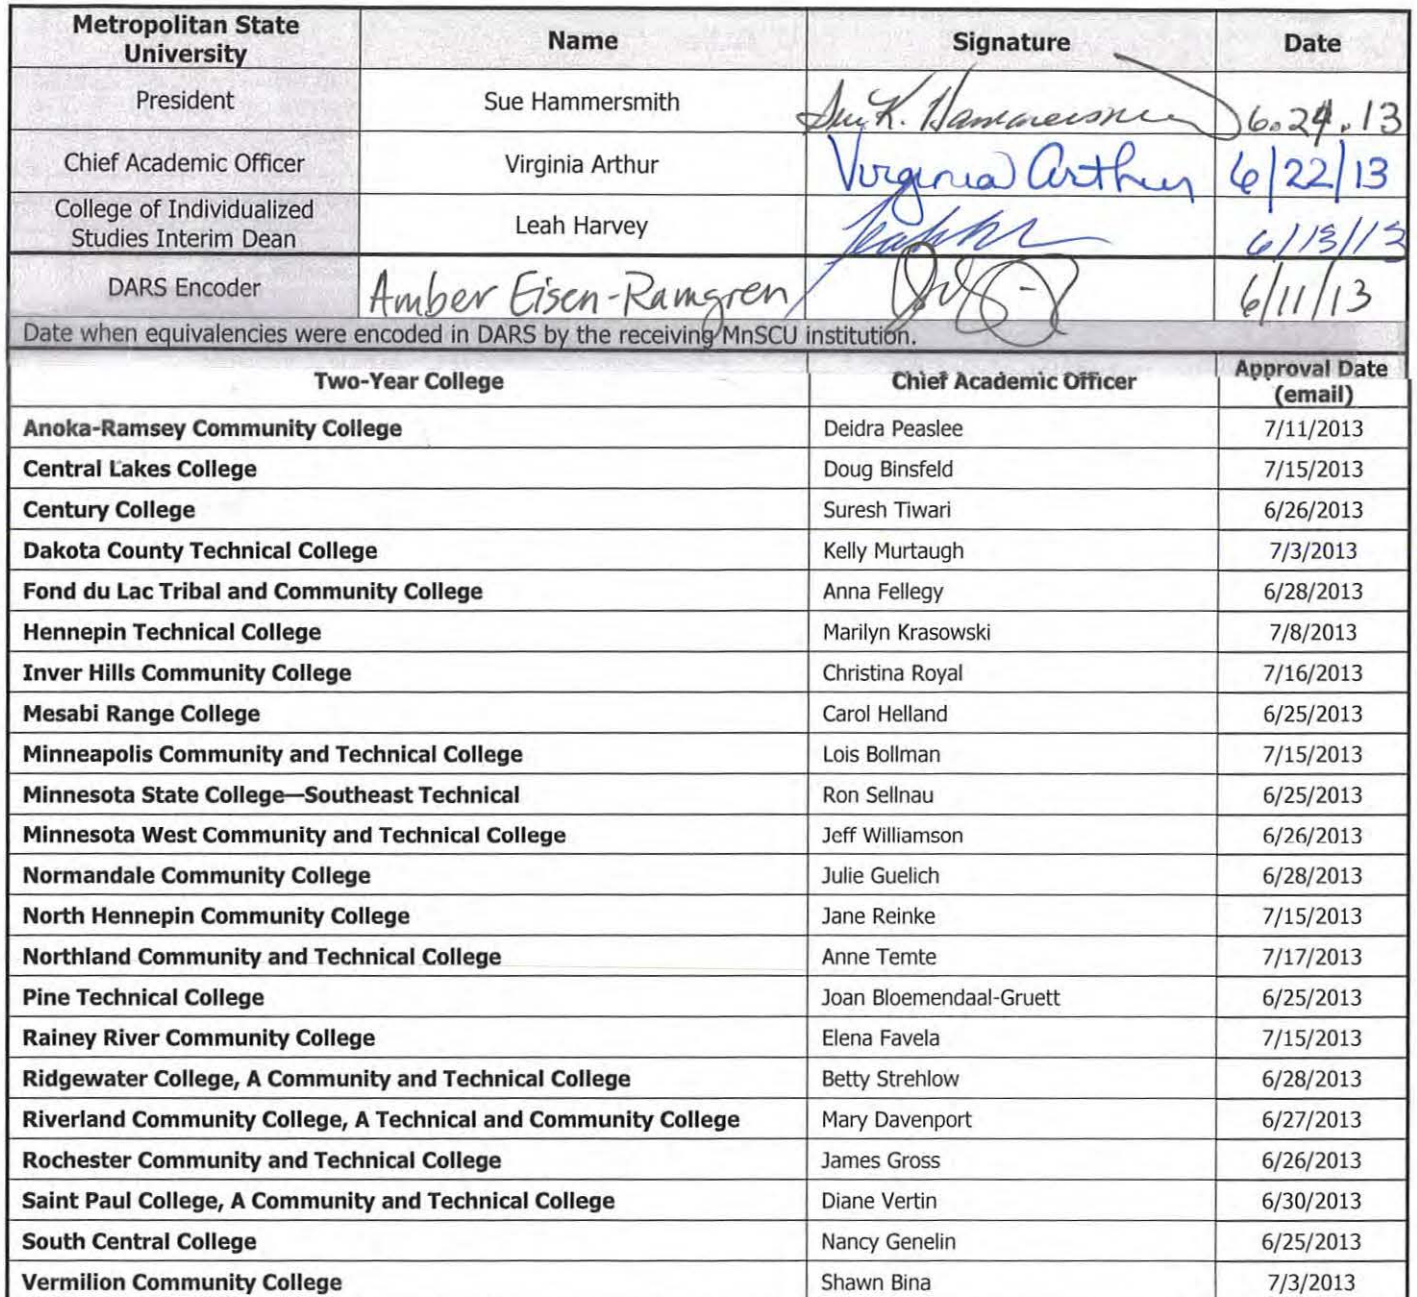 Metropolitan State University Name Signature Date
President Sue Hammersmith Sue K. Hammersmith 6.24.13
Chief Academic Officer Virginia Arthur Virginia Arthur 6/22/13
College of Individualized Studies Interim Dean Leah Harvey 6/13/13
DARS Encoder Amber Eisen-Ramgren 6/11/13
Date when equivalencies were encoded in DARS by the receiving MnSCU institution.
Two-Year College Chief Academic Officer Approval Date (email)
Anoka-Ramsey Community College Deidra Peaslee 7/11/2013
Central Lakes College Doug Binsfeld 7/15/2013
Century College Suresh Tiwari 6/26/2013
Dakota County Technical College Kelly Murtaugh 7/3/2013
Fond du Lac Tribal and Community College Anna Fellegy 6/28/2013
Hennepin Technical College Marilyn Krasowski 7/8/2013
Inver Hills Community College Christina Royal 7/16/2013
Mesabi Range College Carol Helland 6/25/2013
Minneapolis Community and Technical College Lois Bollman 7/15/2013
Minnesota State College—Southeast Technical Ron Sellnau 6/25/2013
Minnesota West Community and Technical College Jeff Williamson 6/26/2013
Normandale Community College Julie Guelich 6/28/2013
North Hennepin Community College Jane Reinke 7/15/2013
Northland Community and Technical College Anne Temte 7/17/2013
Pine Technical College Joan Bloemendaal-Gruett 6/25/2013
Rainey River Community College Elena Favela 7/15/2013
Ridgewater College, A Community and Technical College Betty Strehlow 6/28/2013
Riverland Community College, A Technical and Community College Mary Davenport 6/27/2013
Rochester Community and Technical College James Gross 6/26/2013
Saint Paul College, A Community and Technical College Diane Vertin 6/30/2013
South Central College Nancy Genelin 6/25/2013
Vermilion Community College Shawn Bina 7/3/2013